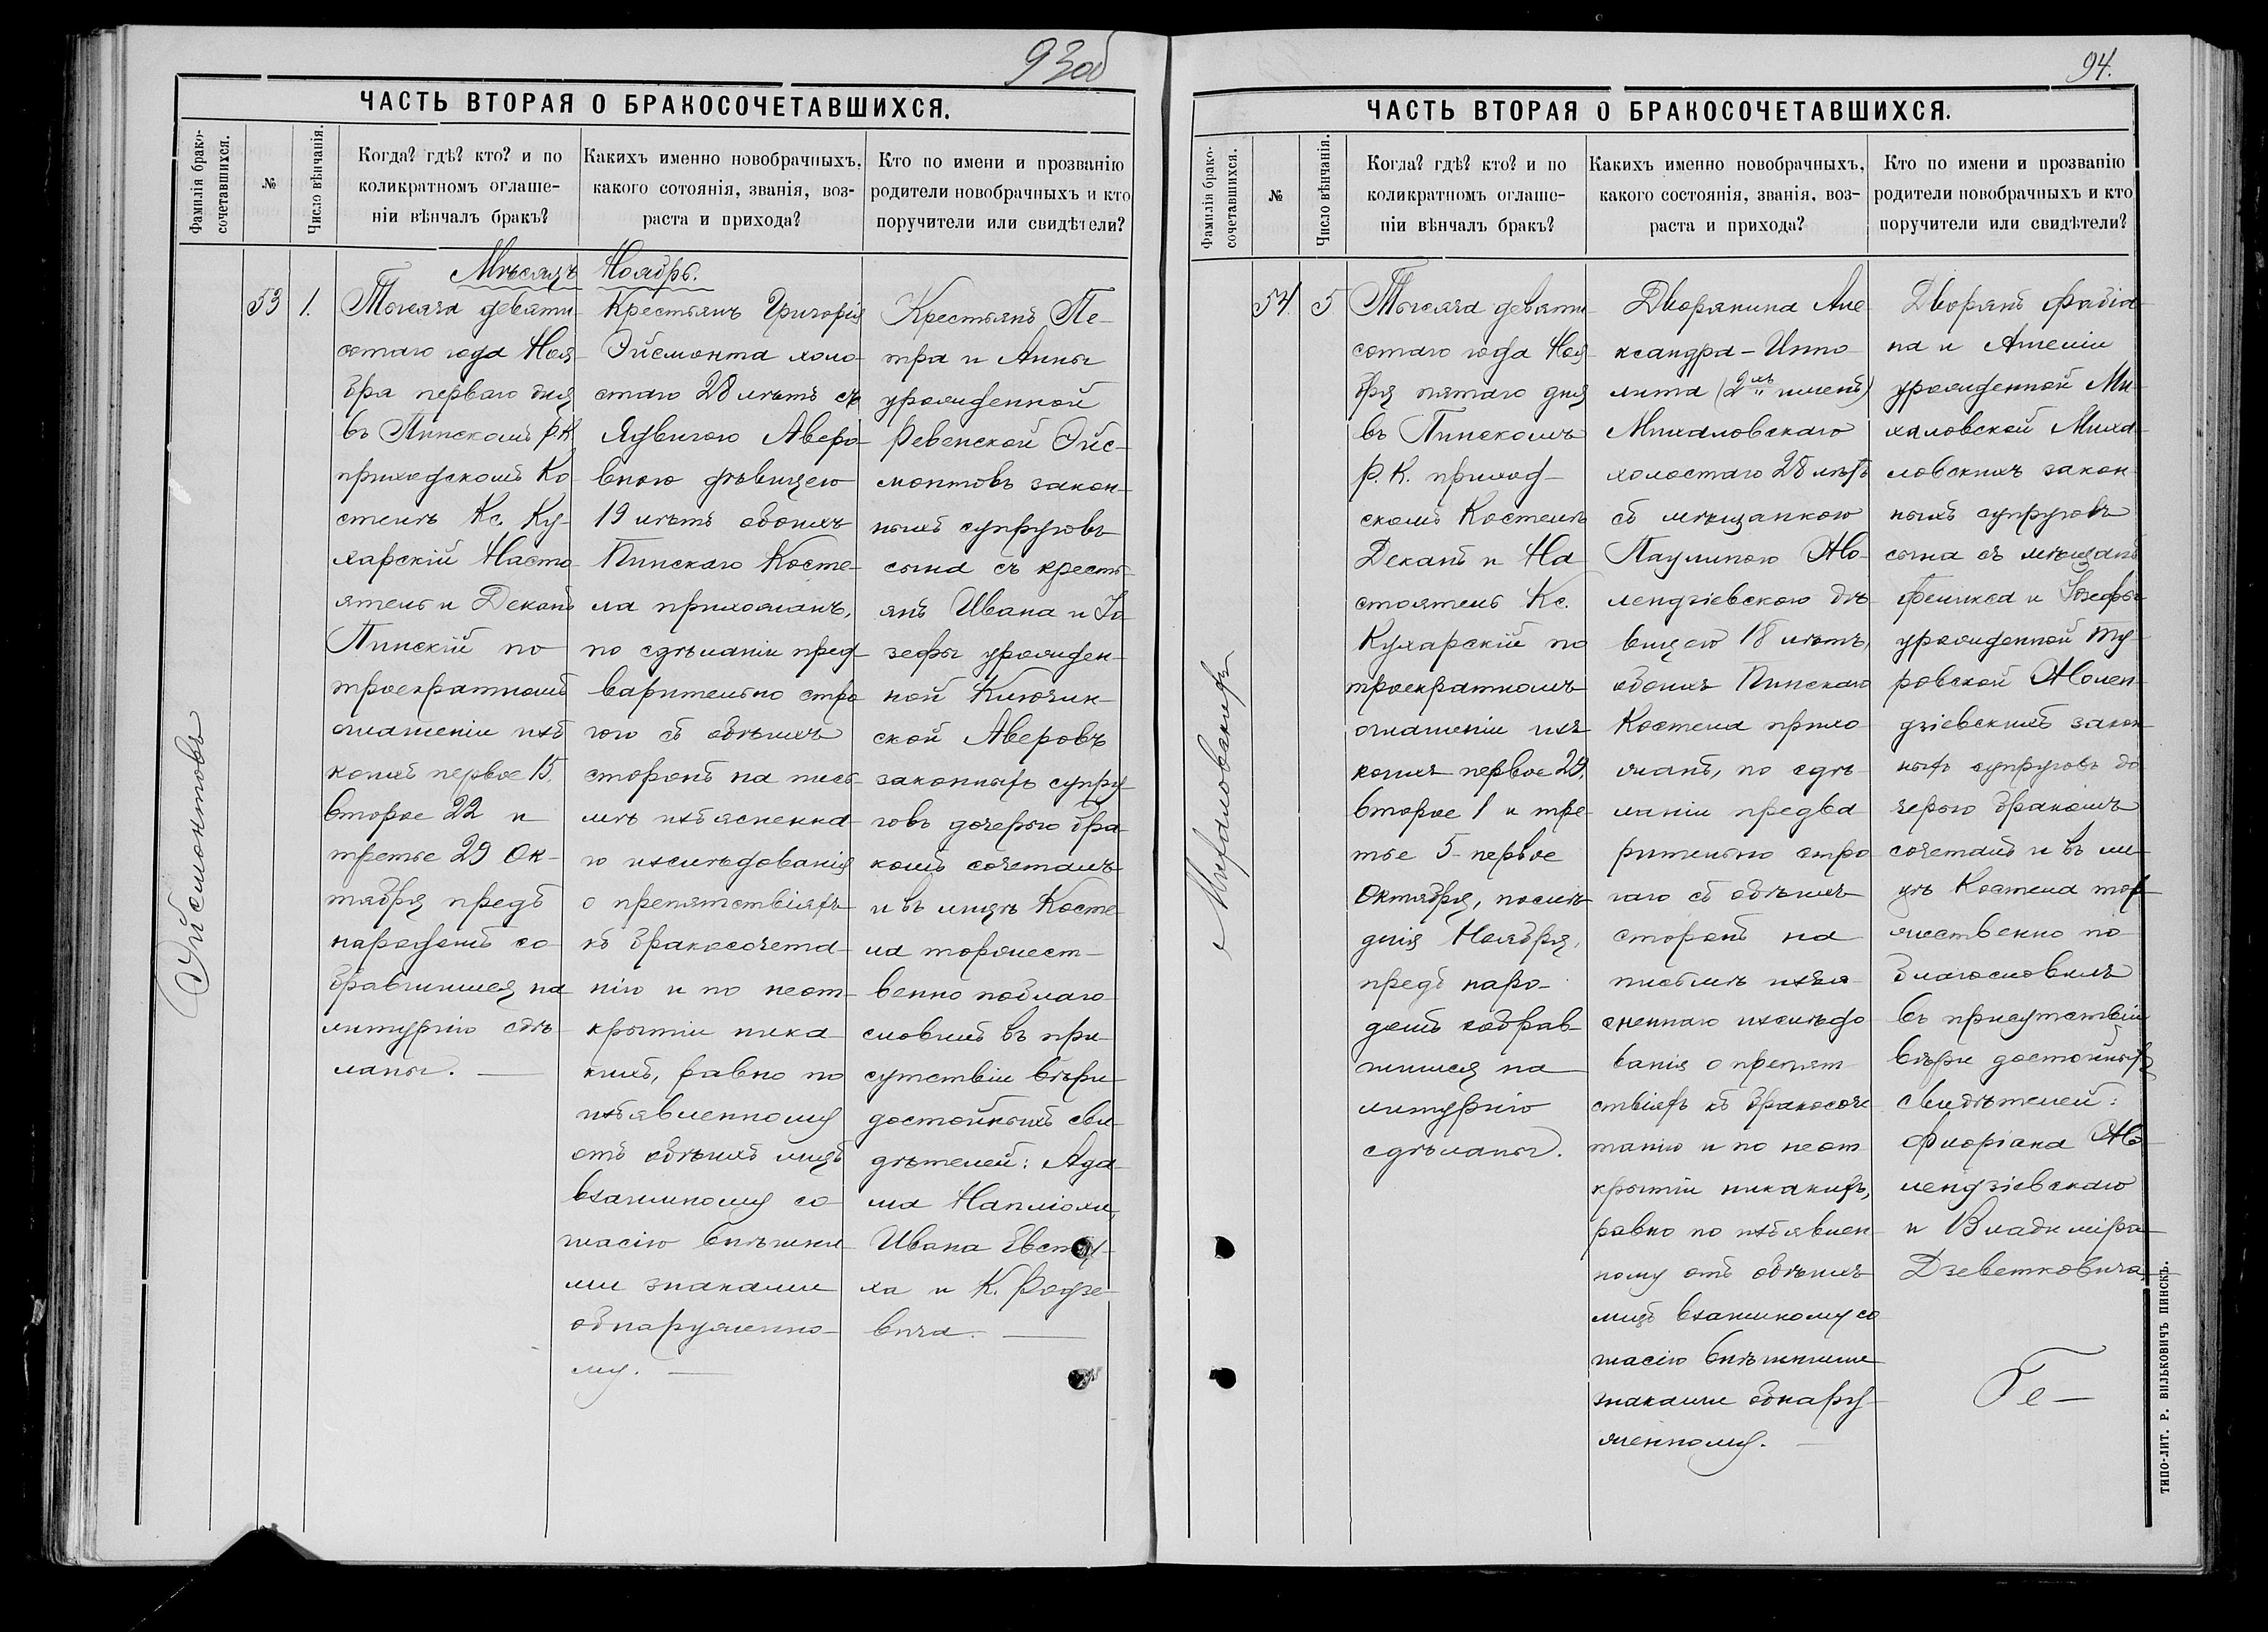 93об
ЧАСТЬ ВТОРАЯ О БРАКОСОЧЕТАВШИХСЯ.
Фамилія брако-
сочетавшихся.
№
Число вѣнчанія.
Когда? гдѣ? кто? и по
коликратномъ оглаше-
ніи вѣнчалъ бракъ?
Какихъ именно новобрачныхъ,
какого сотоянія, званія, воз-
раста и прихода?
Кто по имени и прозванію
родители новобрачныхъ и кто
поручители или свидѣтели?
Мѣсяцъ Ноябрь.
Эйсмонтовъ
53
1.
Тысяча девяти
сотаго года Ноя
бря перваго дня
въ Пинскомъ Р.К.
приходскомъ Ко
стелѣ Кс. Ку-
харскій Насто
ятель и Деканъ
Пинскій по
троекратномъ
оглашеніи ихъ
коихъ первое 15,
второе 22 и
третье 29 Ок-
тября предъ
народомъ со
бравшимся на
литургію сдѣ
ланы.
Крестьянъ Григорія
Эйсмонта холо-
стаго 28 лѣтъ съ
Ядвигою Аверо-
вною дѣвицею
19 лѣтъ обоихъ
Пинскаго Косте-
ла прихожанъ,
по сдѣланіи пред
варительно стро
гого съ обѣихъ
сторонъ на пись-
мѣ изъясненна-
го изслѣдованія
о препятствіяхъ
къ бракосочета-
нію и по неот-
крытіи ника-
кихъ, равно по
изъявленному
отъ обѣихъ лицъ
взаимному со-
гласію внѣшни-
ми знаками
обнаруженно-
му.
Крестьянъ Пе-
тра и Анны
урожденной
Ревенской Эйс-
монтовъ закон-
ныхъ супруговъ
сына съ кресть
янъ Ивана и Іо
зефы урожден-
ной Ключин-
ской Аверовъ
законныхъ супру
говъ дочерью бра
комъ сочеталъ
и въ лицѣ Косте-
ла торжест-
венно поблаго-
словилъ въ при-
сутствіи вѣри-
достойныхъ сви-
дѣтелей: Ада-
ма Напліохи,
Ивана Евсту-
ха и К. Родзе-
вича.
94.
ЧАСТЬ ВТОРАЯ О БРАКОСОЧЕТАВШИХСЯ.
Фамилія брако-
сочетавшихся.
№
Число вѣнчанія.
Когда? гдѣ? кто? и по
коликратномъ оглаше-
ніи вѣнчалъ бракъ?
Какихъ именно новобрачныхъ,
какого состоянія, званія, воз-
раста и прихода?
Кто по имени и прозванію
родители новобрачныхъ и кто
поручители или свидѣтели?
Михаловскихъ
54.
5
Тысяча девяти
сотаго года Ноя
бря пятаго дня
въ Пинскомъ
Р. К. приход-
скомъ Костелѣ
Деканъ и На
стоятель Кс.
Кухарскій по
троекратномъ
оглашеніи ихъ
коихъ первое 29,
второе 1 и тре-
тье 5 первое
Октября, послѣ
днія Ноября,
предъ наро-
домъ собрав
шимся на
литургію
сдѣланы.
Дворянина Але
ксандра-Иппо
лита (2хъ именъ)
Михаловскаго
холостаго 28 лѣтъ
съ мѣщанкою
Паулиною Жо-
лендзіевскою дѣ
вицею 18 лѣтъ,
обоихъ Пинскаго
Костела прихо
жанъ, по сдѣ-
ланіи предва
рительно стро
гаго съ обѣихъ
сторонъ на
письмѣ изъя-
сненнаго изслѣдо
ванія о препят
ствіяхъ къ бракосоче
танію и по неот
крытіи никакихъ,
равно по изъявлен-
ному отъ обѣихъ
лицъ взаимному со
гласію внѣшними
знаками обнару-
женному.
Дворянъ Фабіа-
на и Амеліи
урожденной Ми-
халовской Миха
ловскихъ закон-
ныхъ супруговъ
сына съ мѣщанъ
Феликса и Іозефы
урожденной Ту-
ровской Жолен-
дзіевскихъ закон
ныхъ супруговъ до
черью бракомъ
сочеталъ и въ ли-
цѣ Костела тор
жественно по-
благословилъ
въ присутствіи
вѣри достойныхъ
свидѣтелей:
Флоріана Жо
лендзіевскаго
и Владиміра
Дзеветковича.
ТИПО-ЛИТ. Р. ВИЛЬКОВИЧЪ ПИНСКЪ.